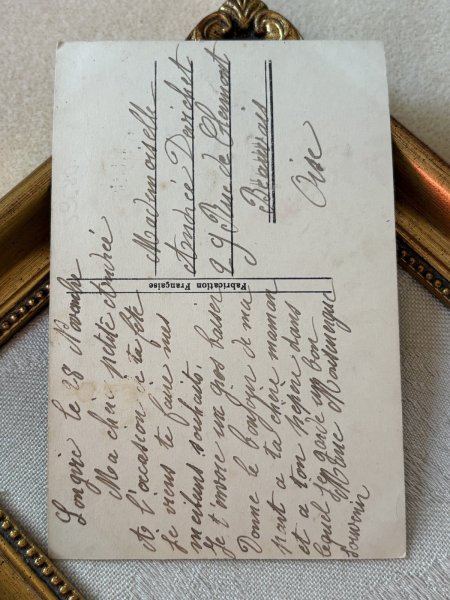 Longvic le 28 Novembre
Ma chère petite Andrée
A l'occasion de ta fête
Je viens te faire mes
meilleurs souhaits.
Je t'envoie un gros baiser
Donne le bonjour de ma
part a ta chère maman
et a ton neveu dans
lequel je garde un bon
souvenir Mme
Fabrication Française
Madamoiselle
Andrée Darichet
29 Rue de Clermont
Beauvais
Oise